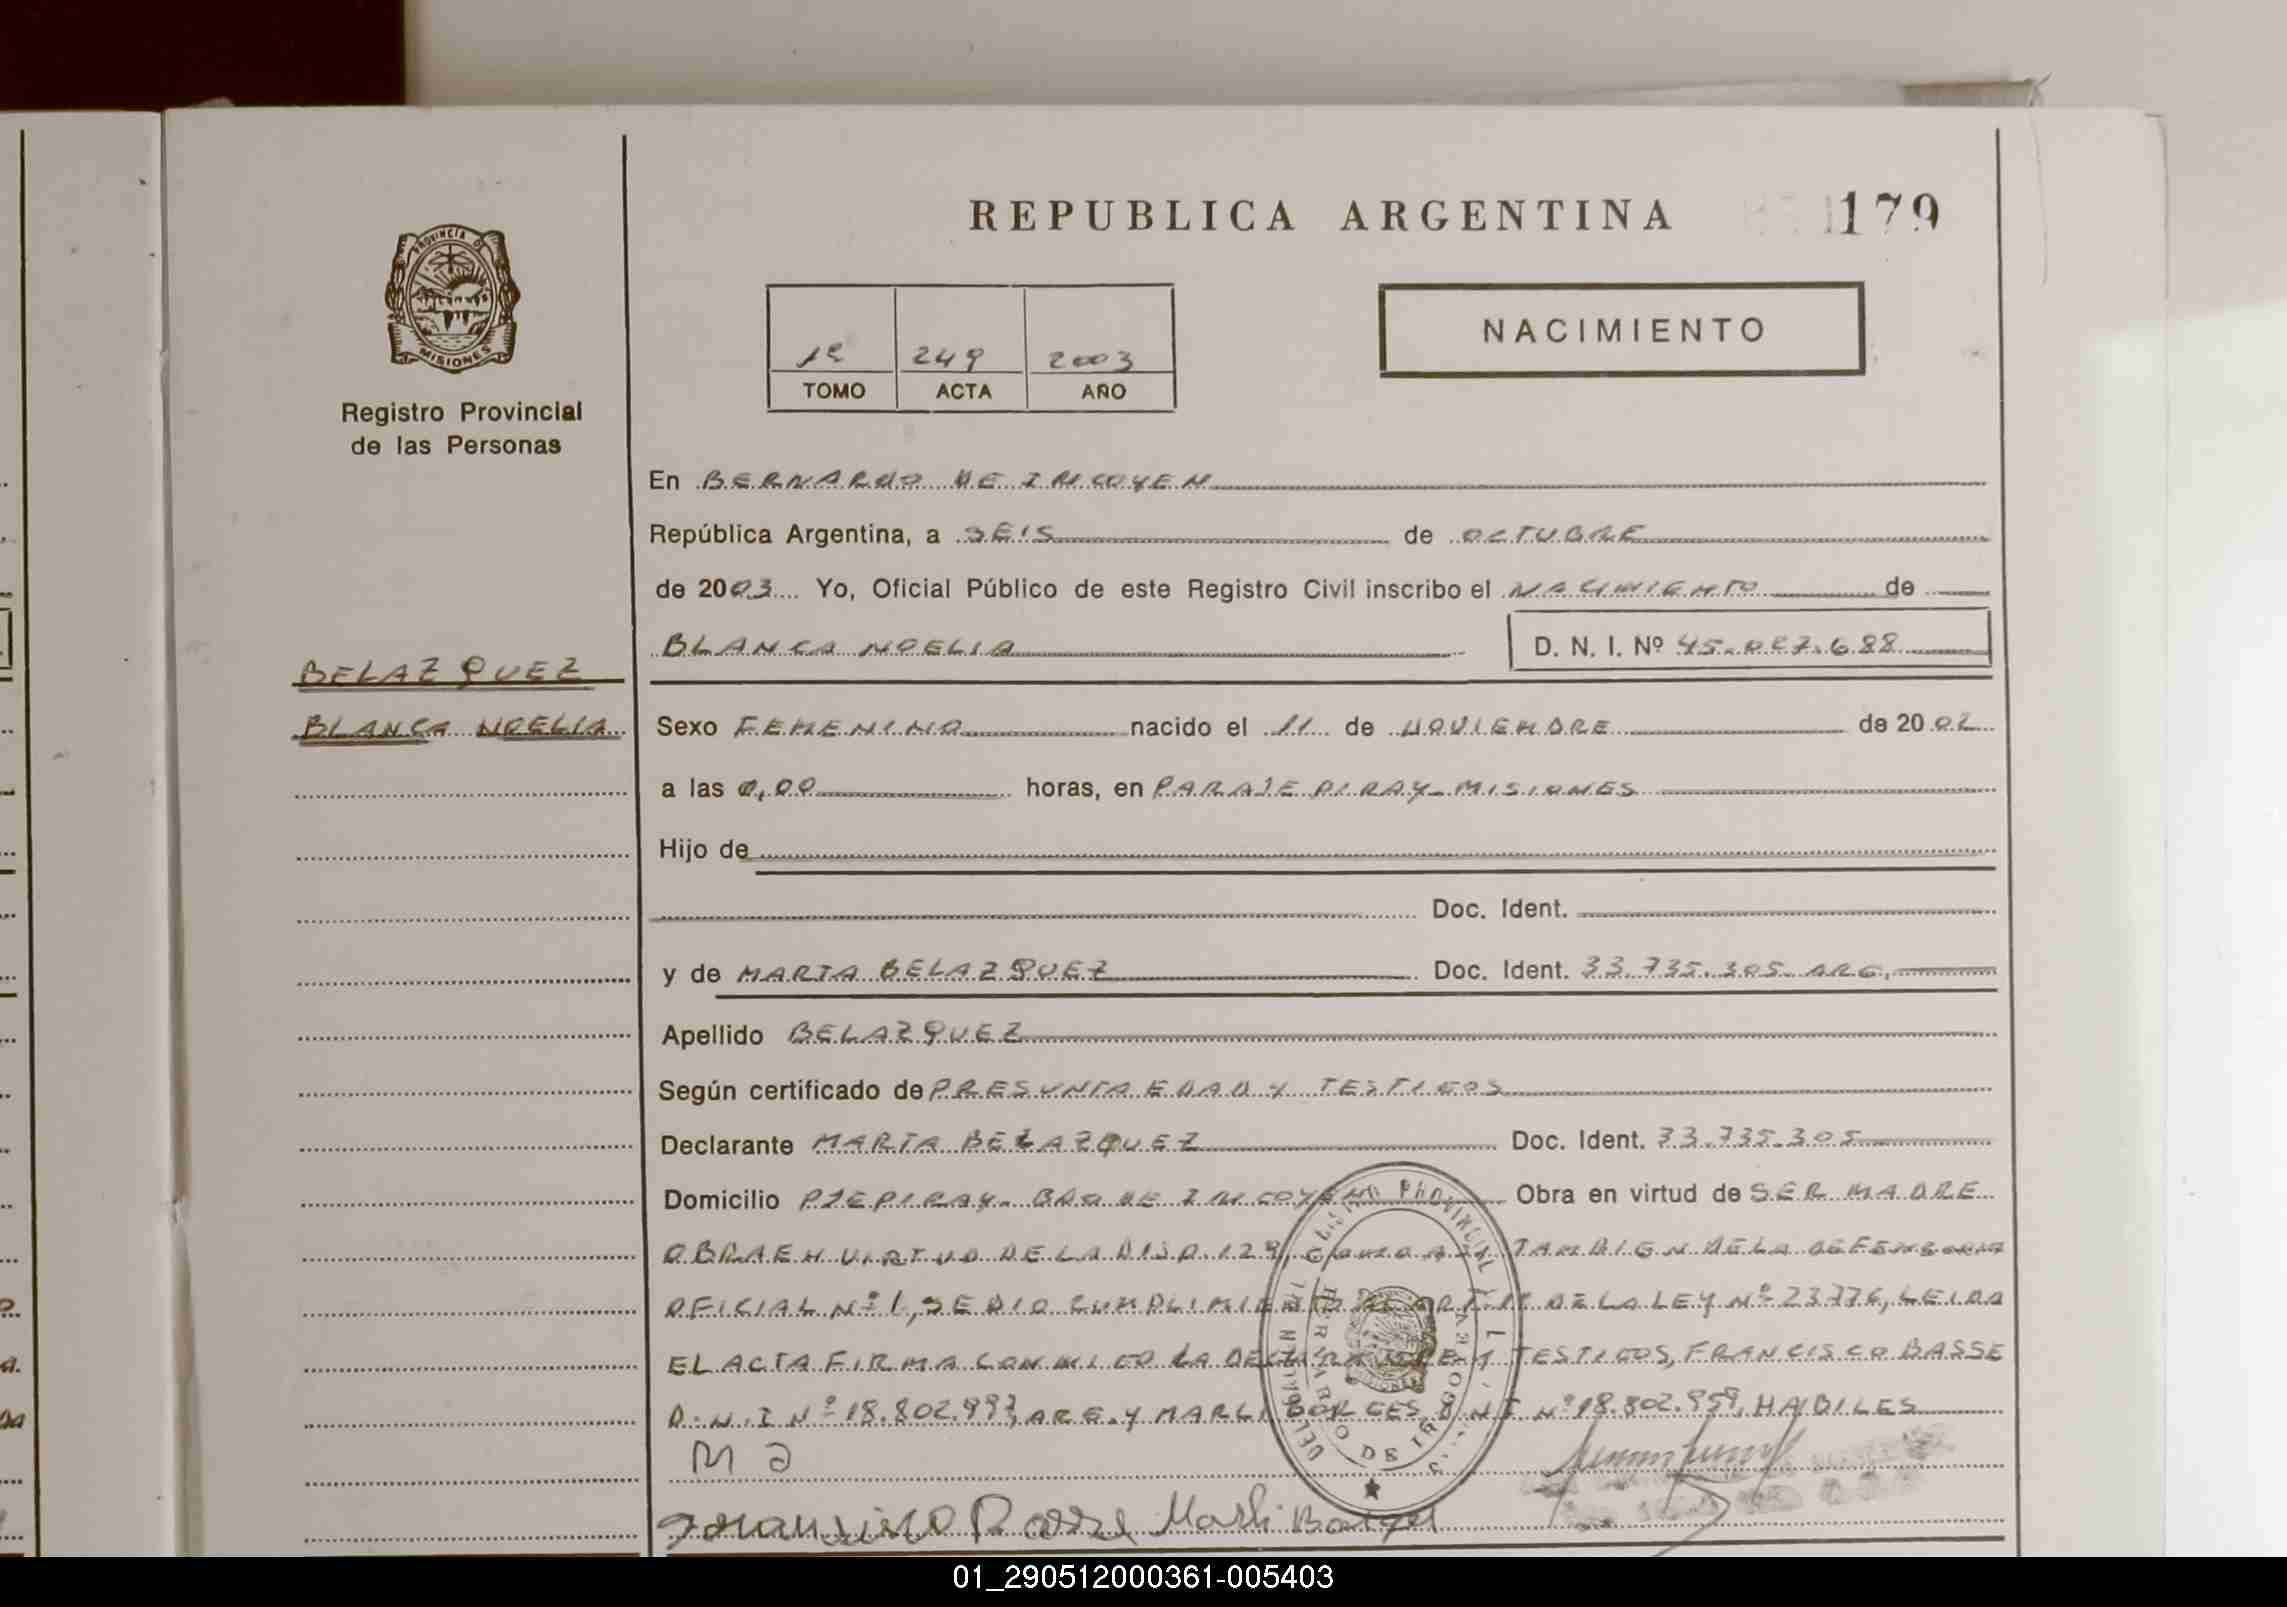 REPUBLICA ARGENTINA
179
PROVINCIA DE
MISIONES
Registro Provincial
de las Personas
1º 249 2003
TOMO ACTA AÑO
NACIMIENTO
En BERNARDO DE IRIGOYEN
República Argentina, a SEIS de OCTUBRE
de 2003 Yo, Oficial Público de este Registro Civil inscribo el NACIMIENTO de
BLANCA NOELIA D. N. I. Nº 45.027.688
BELAZQUEZ
BLANCA NOELIA
Sexo FEMENINO nacido el 11 de NOVIEMBRE de 2002
a las 0,00 horas, en PARAJE PIRAY-MISIONES
Hijo de
Doc. Ident.
y de MARTA BELAZQUEZ Doc. Ident. 33.735.305 ARG,
Apellido BELAZQUEZ
Según certificado de PRESUNTA EDAD Y TESTIGOS
Declarante MARTA BELAZQUEZ Doc. Ident. 33.735.305
Domicilio PJE PIRAY- BDO DE IRIGOYEN Obra en virtud de SER MADRE
OBRA EN VIRTUD DE LA DISP. 129, TAMBIEN DE LA DEFENSORIA
OFICIAL Nº 1, SE DIO CUMPLIMIENTO AL ART. DE LA LEY Nº 23776, LEIDA
EL ACTA FIRMA CONMIGO LA DECLARANTE Y TESTIGOS, FRANCISCO BASSE
D.N.I Nº 18.802.993, ARG. Y MARLI BORGES D.N.I Nº 18.802.959, HABILES
M a
Francisco Basse Marli Borges
01_290512000361-005403